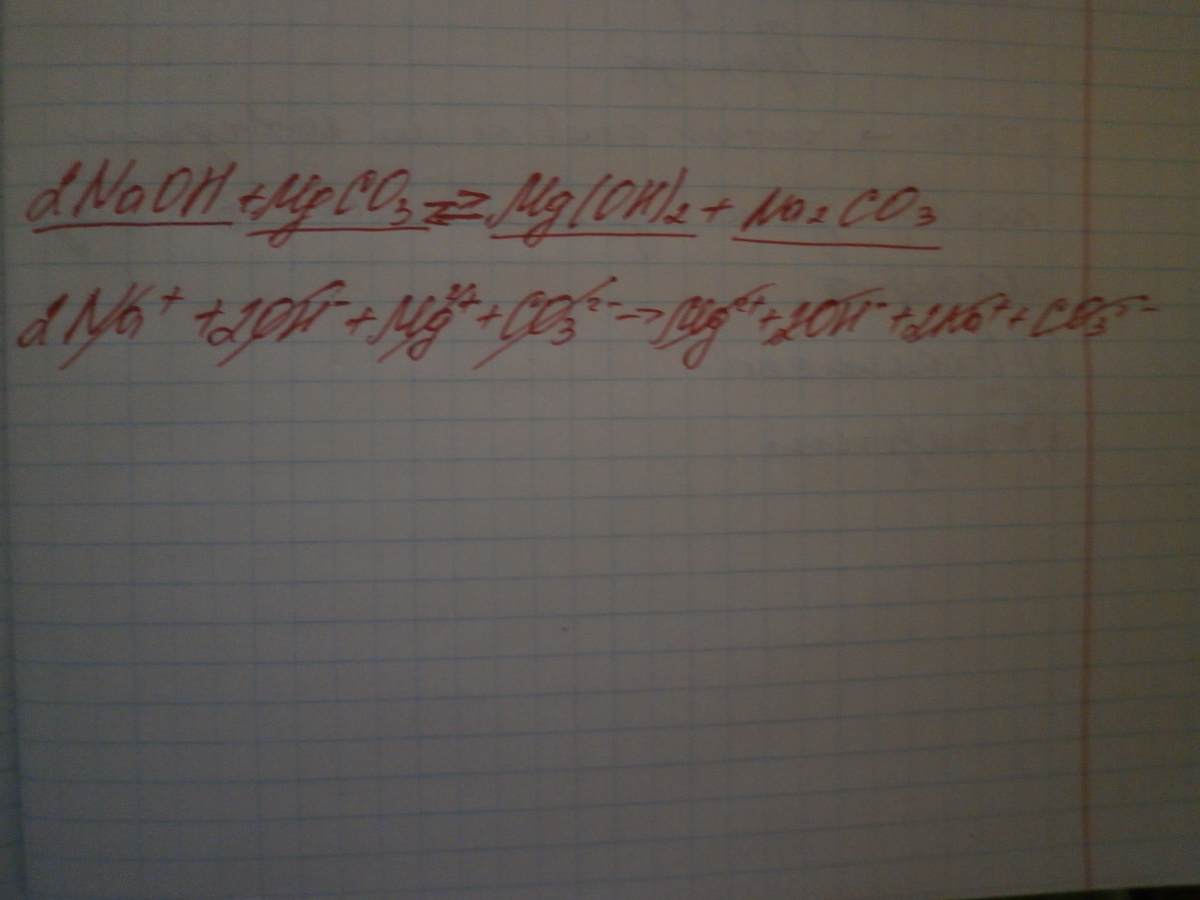 2NaOH + MgCO₃ ⇄ Mg(OH)₂ + Na₂CO₃
2Na⁺ + 2OH⁻ + Mg²⁺ + CO₃²⁻ → Mg²⁺ + 2OH⁻ + 2Na⁺ + CO₃²⁻